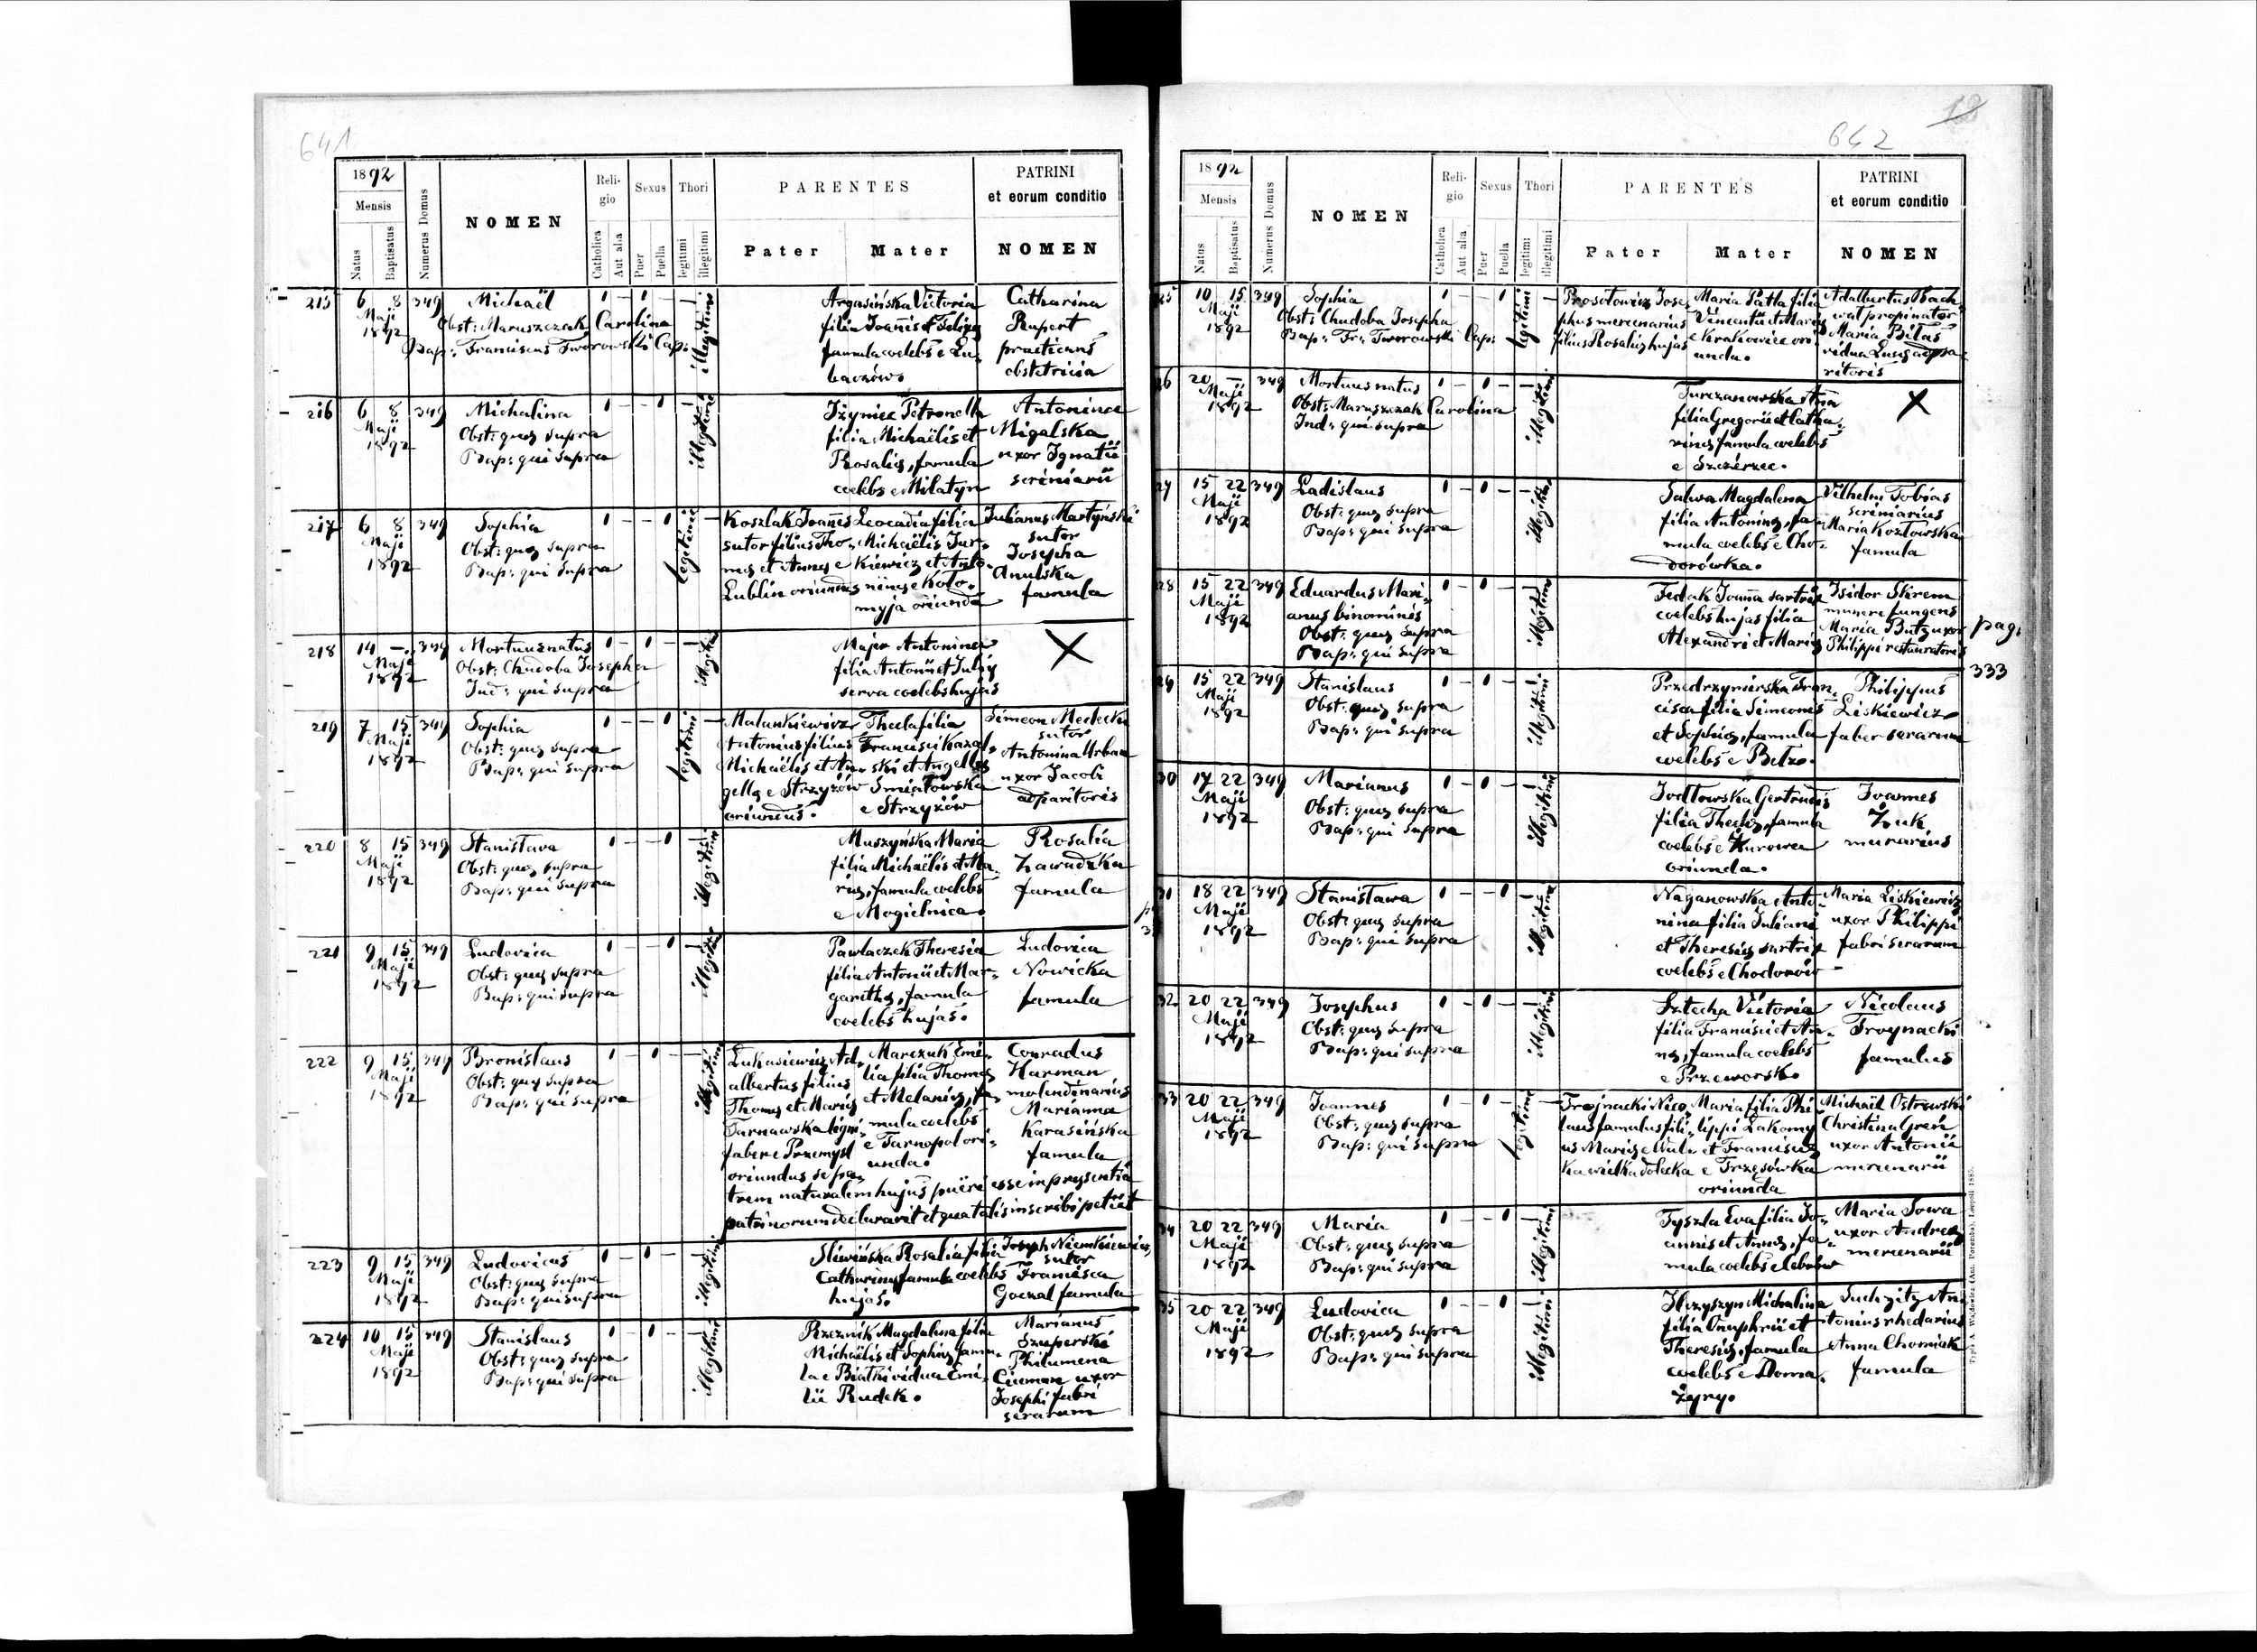 641
1892
Mensis
Natus
Baptisatus
Numerus Domus
NOMEN
Religio
Catholica
Aut alia
Sexus
Puer
Puella
Thori
legitimi
illegitimi
PARENTES
Pater
Mater
PATRINI
et eorum conditio
NOMEN
215
6 8 349
Maji
1892
Michaël
Obst: Maruszczak Carolina
Bap: Franciscus Tworowski Cap:
1 – 1 – – 1
illegitimi
Argasińska Victoria
filia Joannis et Feliciæ
famula coelebs e Lu-
baczów.
Catharina
Rupert
practicans
obstetricia
216
6 8 349
Maji
1892
Michalina
Obst: quæ supra
Bap: qui supra
1 – – 1 – 1
illegitimi
Iżyniec Petronella
filia Michaëlis et
Rosaliæ, famula
coelebs e Milatyn
Antonina
Migalska
uxor Ignatii
scriniarii
217
6 8 349
Maji
1892
Sophia
Obst: quæ supra
Bap: qui supra
1 – – 1 –
legitimi
Koszlak Joannes
sutor filius Tho-
mæ et Annæ e
Lublin oriundus
Leocadia filia
Michaëlis Jur-
kiewicz et Anto-
ninæ e Koło-
myja oriunda
Julianus Martyński
sutor
Josepha
Anulska
famula
218
14 – 349
Maji
1892
Mortuus natus
Obst: Chudoba Josepha
Ind: qui supra
1 – 1 – – 1
illegitimi
Majer Antonina
filia Antonii et Juliæ
serva coelebs hujas
X
219
7 15 349
Maji
1892
Sophia
Obst: quæ supra
Bap: qui supra
1 – – 1 –
legitimi
Malankiewicz
Antonius filius
Michaëlis et An-
gellæ e Strzyżów
oriundus.
Thecla filia
Francisci Kazal-
ski et Angellæ
Śmiatowska
e Strzyżów
Simeon Medecki
sutor
Antonina Urban
uxor Jacobi
adparitoris
220
8 15 349
Maji
1892
Stanislava
Obst: quæ supra
Bap: qui supra
1 – – 1 – 1
illegitimi
Muszyńska Maria
filia Michaëlis et Ma-
riæ, famula coelebs
e Mogielnica.
Rosalia
Zawadzka
famula
221
9 15 349
Maji
1892
Ludovica
Obst: quæ supra
Bap: qui supra
1 – – 1 – 1
illegitimi
Pawlaczek Theresia
filia Antonii et Mar-
garithæ, famula
coelebs hujas.
Ludovica
Nowicka
famula
222
9 15 349
Maji
1892
Bronislaus
Obst: quæ supra
Bap: qui supra
1 – 1 – – 1
illegitimi
Łukasiewicz Ad-
albertus filius
Thomæ et Mariæ
Tarnawska ligni-
faber e Przemyśl
oriundus se pa-
Marczuk Emi-
lia filia Thomæ
et Melaniæ, fa-
mula coelebs
e Tarnopol ori-
unda.
trem naturalem hujus pueri esse in præsentia
patrinorum declaravit et qua talis inscribi petiit
Conradus
Harman
molendinarius
Marianna
Karasińska
famula
223
9 15 349
Maji
1892
Ludovicus
Obst: quæ supra
Bap: qui supra
1 – 1 – – 1
illegitimi
Sliwińska Rosalia filia
Catharinæ famula coelebs
hujas.
Joseph Niemkiewicz
sutor
Francisca
Goczal famula
224
10 15 349
Maji
1892
Stanislaus
Obst: quæ supra
Bap: qui supra
1 – 1 – – 1
illegitimi
Rzeznik Magdalena filia
Michaëlis et Sophiæ famu-
la e Białki vidua Emi-
lii Rudek.
Marianus
Szuperski
Philumena
Ciuman uxor
Josephi fabri
serarum
642
1892
Mensis
Natus
Baptisatus
Numerus Domus
NOMEN
Religio
Catholica
Aut alia
Sexus
Puer
Puella
Thori
legitimi
illegitimi
PARENTES
Pater
Mater
PATRINI
et eorum conditio
NOMEN
25
10 15 349
Maji
1892
Sophia
Obst: Chudoba Josepha
Bap: Fr: Tworowski Cap:
1 – – 1 –
legitimi
Prosołowicz Jose-
phus mercenarius
filius Rosaliæ hujas
Maria Patla filia
Vincentii et Mariæ
e Krakowiec ori-
unda.
Adalbertus Bach-
wat propinator
Maria Bilas
vidua Lucæ adpa-
ritoris
26
20 – 349
Maji
1892
Mortuus natus
Obst: Maruszczak Carolina
Ind: qui supra
1 – 1 – – 1
illegitimi
Turczanowska Anna
filia Gregorii et Catha-
rinæ famula coelebs
e Szczérzec.
X
27
15 22 349
Maji
1892
Ladislaus
Obst: quæ supra
Bap: qui supra
1 – 1 – – 1
illegitimi
Salwa Magdalena
filia Antoninæ, fa-
mula coelebs e Cho-
dorówka.
Vilhelm Tobias
scriniarius
Maria Kozłowska
famula
28
15 22 349
Maji
1892
Eduardus Mari-
anus binominis
Obst: quæ supra
Bap: qui supra
1 – 1 – – 1
illegitimi
Fedak Joanna sartrix
coelebs hujas filia
Alexandri et Mariæ
Isidor Skrem
munere fungens
Maria Butz uxor
Philippi restauratoris
pag.
333
29
15 22 349
Maji
1892
Stanislaus
Obst: quæ supra
Bap: qui supra
1 – 1 – – 1
illegitimi
Przedrzymirska Fran-
cisca filia Simeonis
et Sophiæ, famula
coelebs e Bełz.
Philippus
Liskiewicz
faber serarum
30
17 22 349
Maji
1892
Marianus
Obst: quæ supra
Bap: qui supra
1 – 1 – – 1
illegitimi
Jodłowska Gertrudis
filia Theclæ, famula
coelebs e Kurowca
oriunda.
Joannes
Żuk
murarius
31
18 22 349
Maji
1892
Stanisława
Obst: quæ supra
Bap: qui supra
1 – – 1 – 1
illegitimi
Naganowska Anto-
nina filia Juliani
et Theresiæ sartrix
coelebs e Chodorów
Maria Liskiewicz
uxor Philippi
fabri serarum
32
20 22 349
Maji
1892
Josephus
Obst: quæ supra
Bap: qui supra
1 – 1 – – 1
illegitimi
Sztecha Victoria
filia Francisci et An-
næ, famula coelebs
e Przeworsk.
Nicolaus
Troynacki
famulus
33
20 22 349
Maji
1892
Joannes
Obst: quæ supra
Bap: qui supra
1 – 1 – –
legitimi
Trojnacki Nico-
laus famulus fili-
us Mariæ e Wul-
ka wielka dolecka
Maria filia Phi-
lippi Łakomy
et Franciscæ
e Trzęsówka
oriunda
Michaël Ostrowski
Christina Gren
uxor Antonii
mercenarii
34
20 22 349
Maji
1892
Maria
Obst: quæ supra
Bap: qui supra
1 – – 1 – 1
illegitimi
Tyszla Eva filia Jo-
annis et Annæ, fa-
mula coelebs e Cebrów
Maria Sowa
uxor Andreæ
mercenarii
35
20 22 349
Maji
1892
Ludovica
Obst: quæ supra
Bap: qui supra
1 – – 1 – 1
illegitimi
Hryszyn Michalina
filia Onuphrii et
Theresiæ, famula
coelebs e Doma-
żyry.
An-
tonius rhedarius
Anna Chomiak
famula